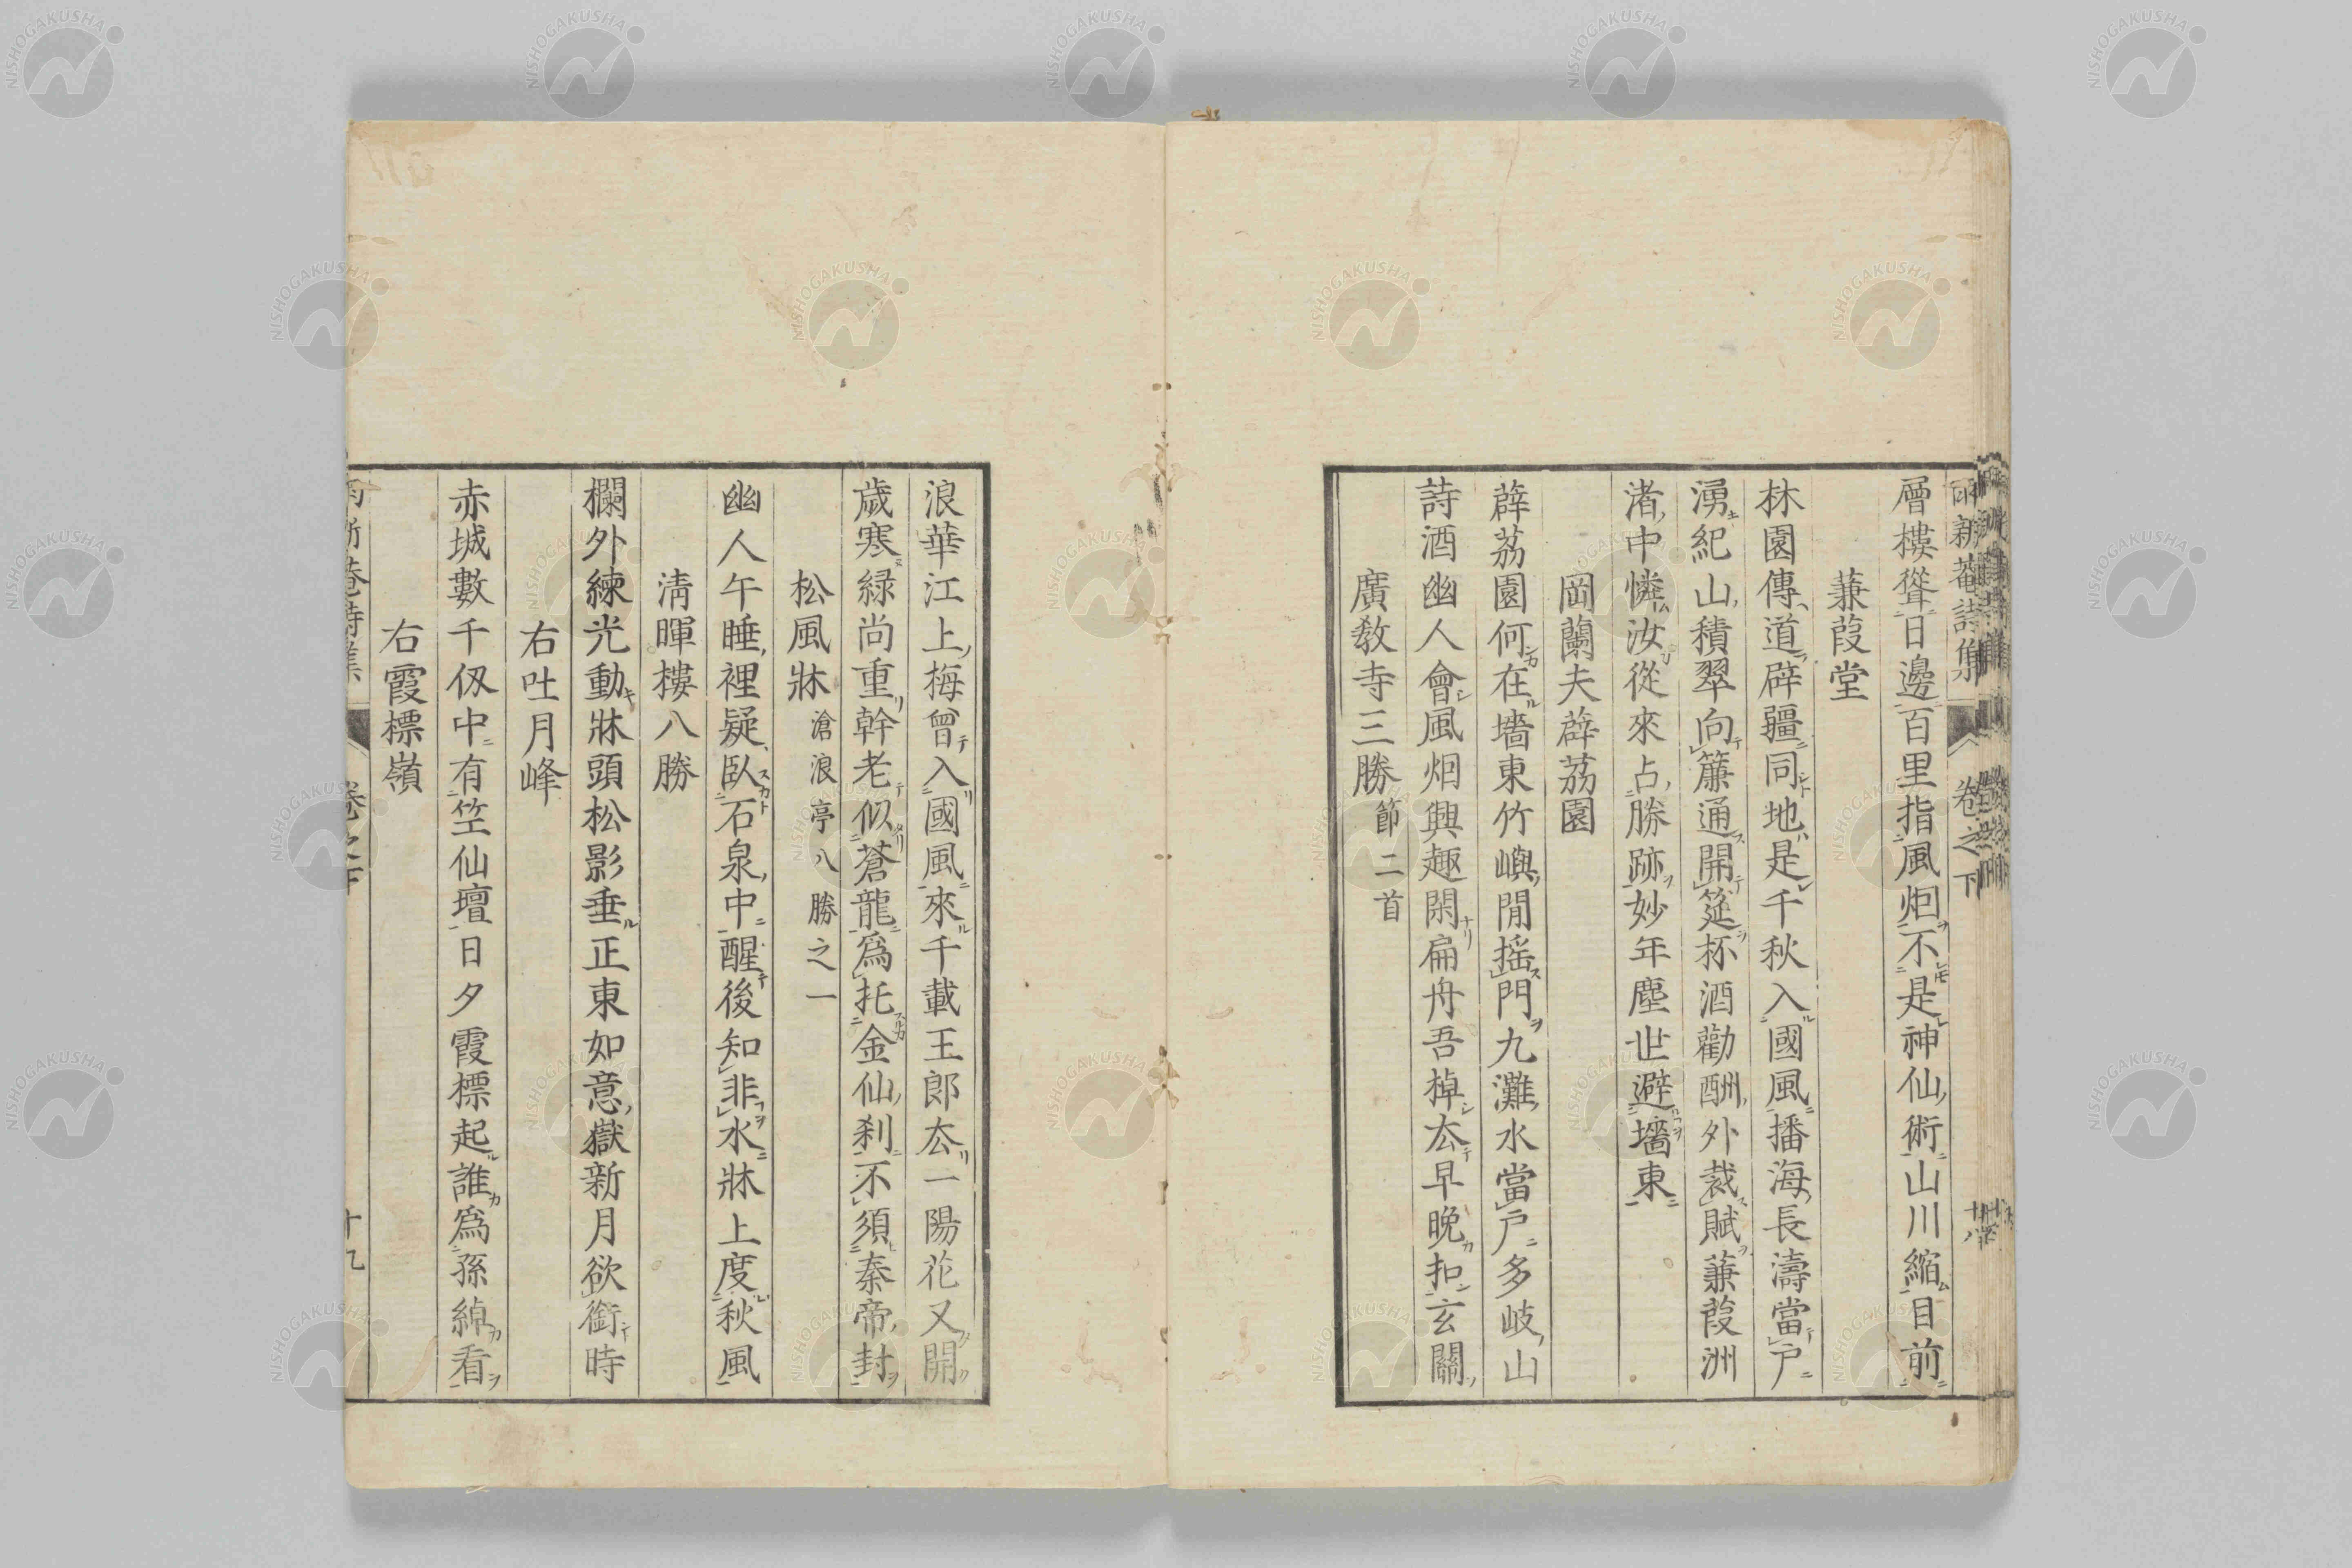 層樓聳日邊百里指風烟不是神仙術山川縮目前
蒹葭堂
林園傳道辟疆同地是千秋入國風播海長濤當戸
湧紀山積翠向簾通開筵杯酒勸酬外裁賦蒹葭洲
渚中憐汝從來占勝跡妙年塵世避墻東
岡蘭夫薜荔園
薜荔園何在墻東竹嶼間搖門九灘水當戸多岐山
詩酒幽人會風烟興趣閑扁舟吾棹去早晩扣玄關
廣教寺三勝 節二首
卷之下
十八
浪華江上梅曾入國風來千載王郎去一陽花又開
歳寒緑尚重幹老似蒼龍爲托金仙刹不須秦帝封
松風牀 滄浪亭八勝之一
幽人午睡裡疑臥石泉中醒後知非水牀上度秋風
淸暉樓八勝
欄外練光動牀頭松影垂正東如意嶽新月欲銜時
右吐月峰
赤城數千仭中有笁仙壇日夕霞標起誰爲孫綽看
右霞標嶺
卷之下
十九
NISHOGAKUSHA